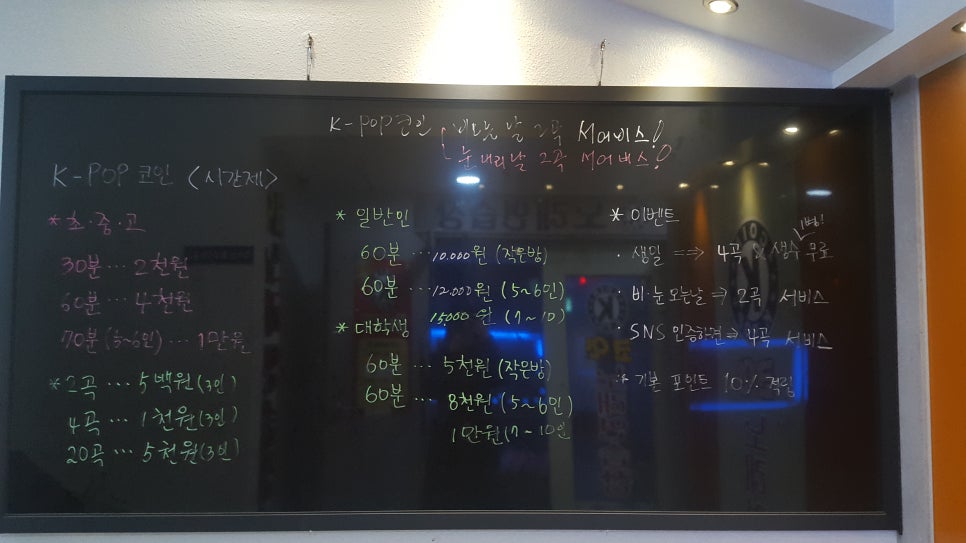 K-POP코인 비오는 날 2곡 서어비스!
눈내리날 2곡 서어비스!
K-POP 코인 <시간제>
*초·중·고
30분… 2천원
60분… 4천원
70분(5~6인)… 1만원
*2곡… 5백원(3인)
4곡… 1천원(3인)
20곡… 5천원(3인)
* 일반인
60분…10.000원(작은방)
60분…12.000원(5~6인)
15,000원(7~10)
* 대학생
60분… 5천원(작은방)
60분… 8천원(5~6인)
1만원(7~10인
* 이벤트
1병!
· 생일 ⇒ 4곡 & 생수 무료
· 비·눈오는날⇒2곡 서비스
· SNS 인증하면⇒4곡 서비스
* 기본 포인트 10% 적립